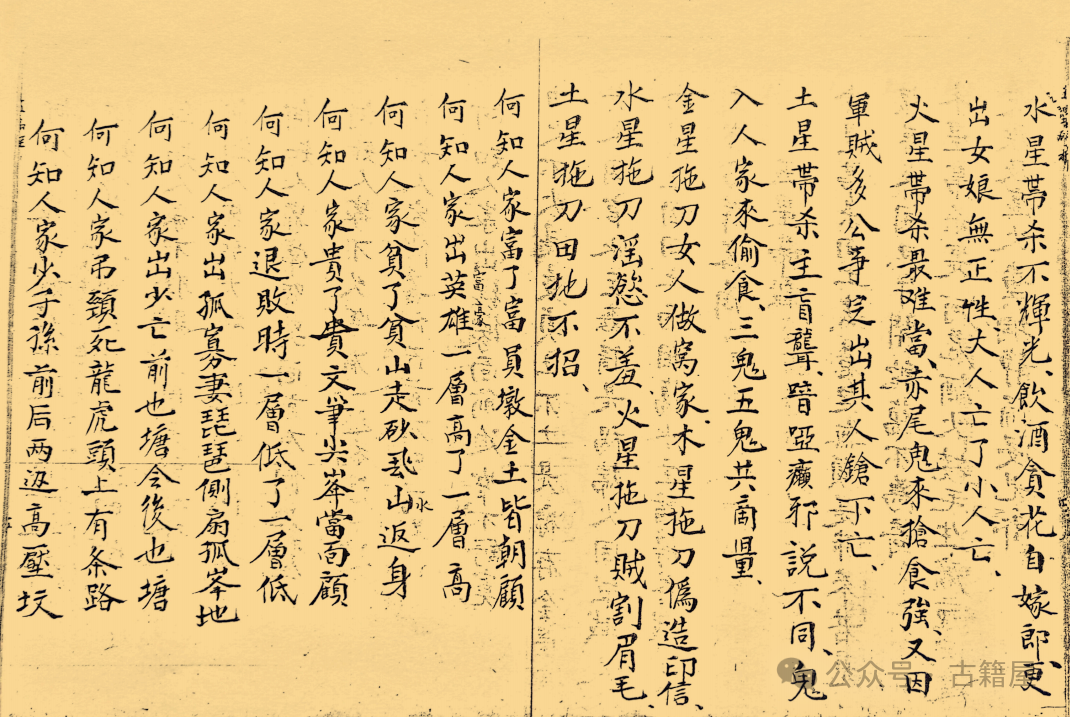 水星帶杀不輝光、飲酒貪花自嫁郎、更
出女娘無正性、大人亡了小人亡、
火星帶杀最难當、赤尾鬼來搶食強、又因
軍賊多公事完出其人鎗下亡、
土星帶杀主盲聾、喑啞癲邪說不同、鬼
入人家來偷食、三鬼五鬼共商量、
金星拖刀女人做窩家、木星拖刀偽造印信、
水星拖刀淫慾不羞、火星拖刀賊割眉毛、
土星拖刀田地不招、
何知人家富了富員墩金土皆朝顧
何知人家出英雄一層高了一層高
富豪
何知人家貧了貧山走砂飛山返身
水
何知人家貴了貴文筆尖峯當面顧
何知人家退敗時一層低了一層低
何知人家出孤寡妻琵琶側扇孤峯地
何知人家出少亡前也塘令後也塘
何知人家吊頸死龍虎頭上有条路
何知人家少子孫前后两返高壓坟
公众号 古籍屋